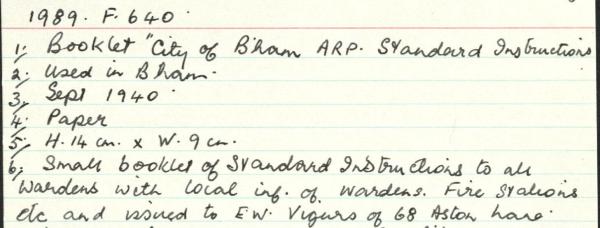 1989. F. 640.
1, Booklet "City of B'ham ARP. Standard Instructions
2. Used in B'ham.
3, Sept 1940.
4. Paper
5, H. 14 cm. x W. 9 cm.
6, Small booklet of Standard Instructions to all
Wardens with local inf. of. Wardens. Fire Stations
etc and issued to E.W. Vigurs of 68 Aston Lane.